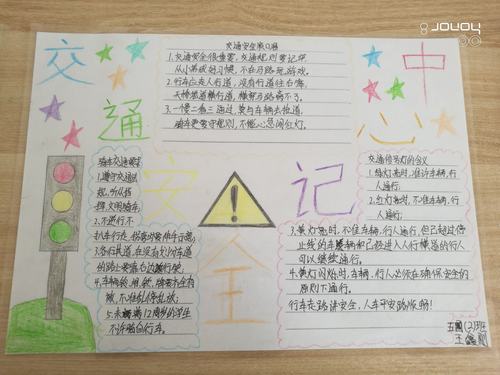 JOVOY
交通安全记心中
交通安全顺口溜
1.交通安全很重要,交通规则要记牢
从小养成好习惯,不在马路玩游戏。
2.行车占去人行道,没有行道往右靠
天桥地道横行道,横穿马路离不了。
3.一慢二看三通过,莫与车辆去抢道
骑车更要守规则,不能心急闯红灯。
骑车交通规定
1.遵守交通法
规,
2.不逆行不
3.各行其道,在没有划分车道
的路上要靠右边
4.车辆
5.未满12周岁的学生
不许骑自行车。
交通信号灯的含义
1.绿灯亮时,准许车辆,行
人通行;
2.红灯亮时,不准车辆,行
人通行;
3.黄灯亮时,不准车辆,行人通行,但已超过停
止线的车辆和已经进入人行横道的行人
可以继续通行。
4.黄灯闪烁时,车辆,行人必须在确保安全的
原则下通行。
行车走路讲安全,人车平安路顺畅!
五(2)班
王鑫